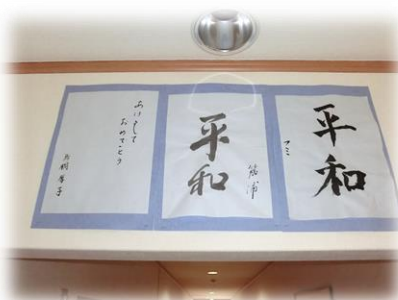 平和
フミ
平和
あけまして
おめでとう